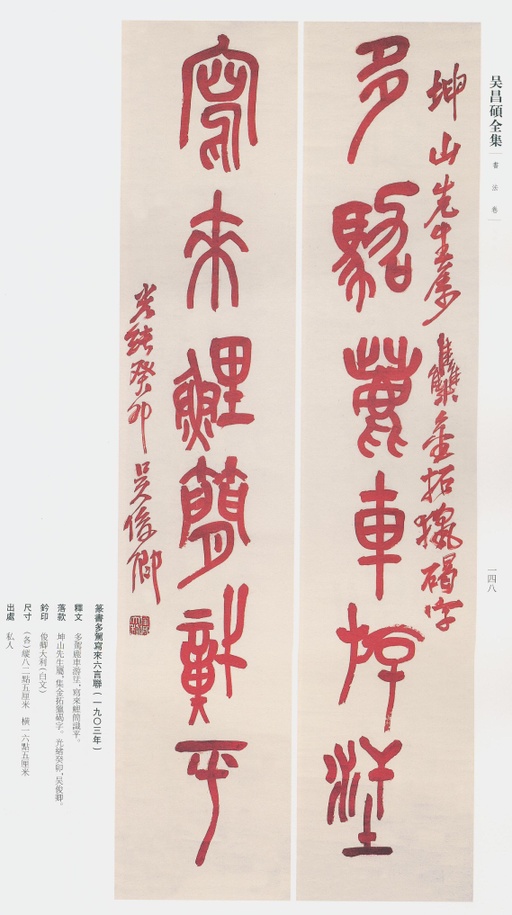 吴昌碩全集
書法卷
一四八
坤山先生屬 雧金拓獵碣字
多駕麀車
寫來鯉簡識平
光緒癸卯 吳俊卿
篆書多駕寫來六言聯(一九〇三年)
釋文 多駕麀車游,寫來鯉簡識平。
落款 坤山先生屬,集金拓獵碣字。光緒癸卯,吴俊卿。
鈐印 俊卿大利(白文)
尺寸 (各)縱八二點五厘米 橫一六點五厘米
出處 私人